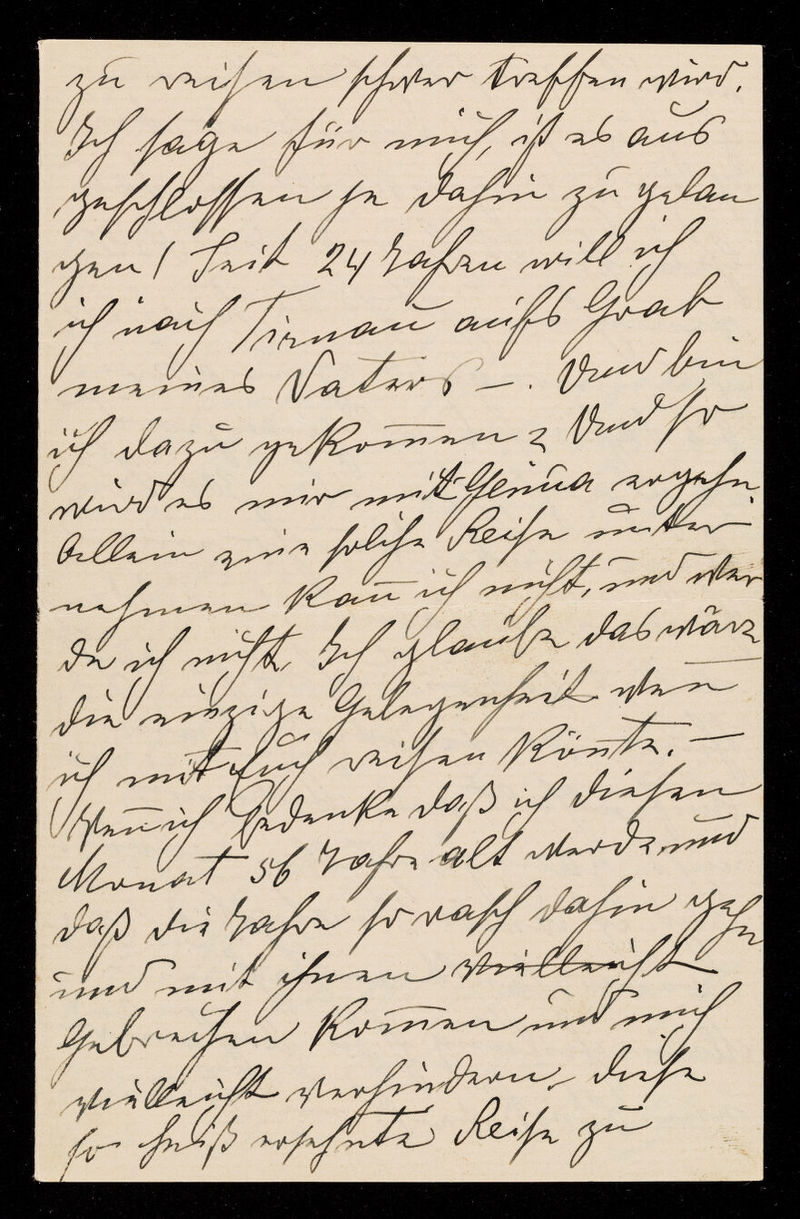 zu reisen schwer treffen wird.
Ich sage für mich, ist es aus
geschlossen je dahin zu gelan
gen! Seit 24 Jahren will ich
ich nach Tirnau aufs Grab
meines Vaters –. Und bin
ich dazu gekom̄en? Und so
wird es mir mit Genua ergehn
Allein eine solche Reise unter
nehmen kan̄ ich nicht, und wer
de ich nicht. Ich glaube das wäre
die einzige Gelegenheit wen̄
ich mit Euch reisen kön̄te. –
Wen̄ ich bedenke daß ich diesen
Monat 56 Jahre alt werde und
daß die Jahre so rasch dahin gehn
und mit ihnen vielleicht
Gebrechen kom̄en und mich
vielleicht verhindern, diese
so heiß ersehnte Reise zu